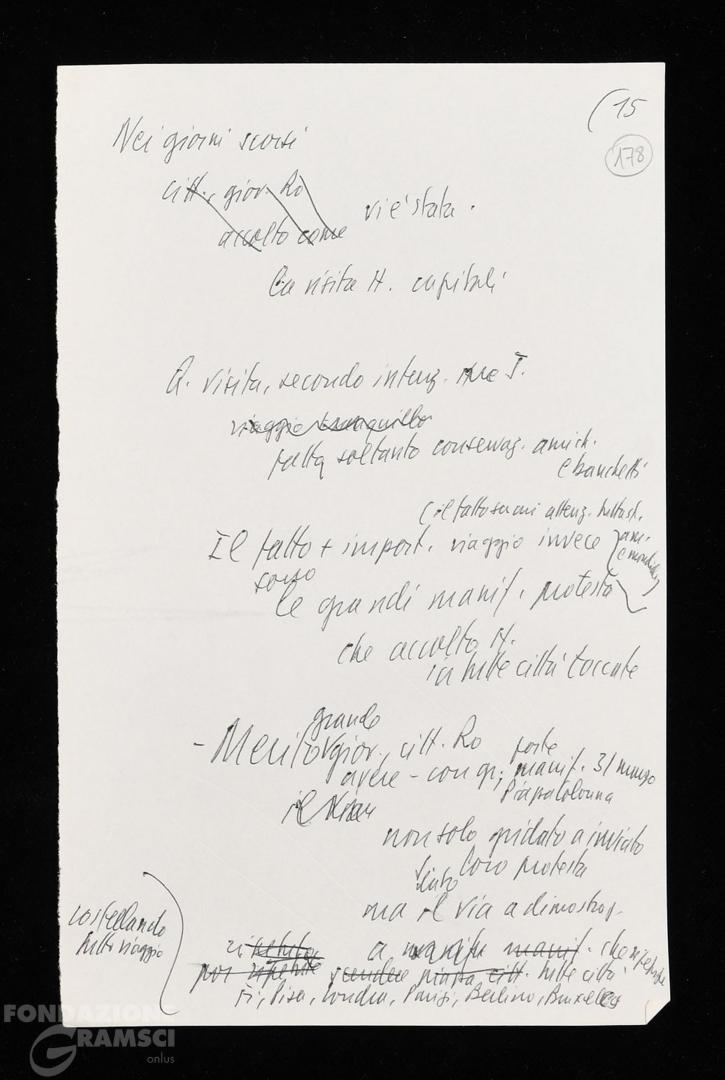 (15
178
Nei giorni scorsi
citt., giov. Ro
accolto come vi è stata.
La visita H. capitali
Q. visita, secondo intenz. J.
viaggio tranquillo
fatta soltanto conversaz. amich.
e banchetti
Il fatto + import. viaggio invece
sono
le grandi manif. protesta
che accolto H.
in tutte città toccate
grande
- Merito giov., citt. Ro
avere - con gr. forte manif. 31 marzo
Piazza Colonna
non solo gridato a inviato
loro protesta
ma il via a dimostraz.
costellando
tutto viaggio
a manif. tutte città
Fi, Pisa, Londra, Parigi, Berlino, Bruxelles
FONDAZIONE
GRAMSCI
onlus